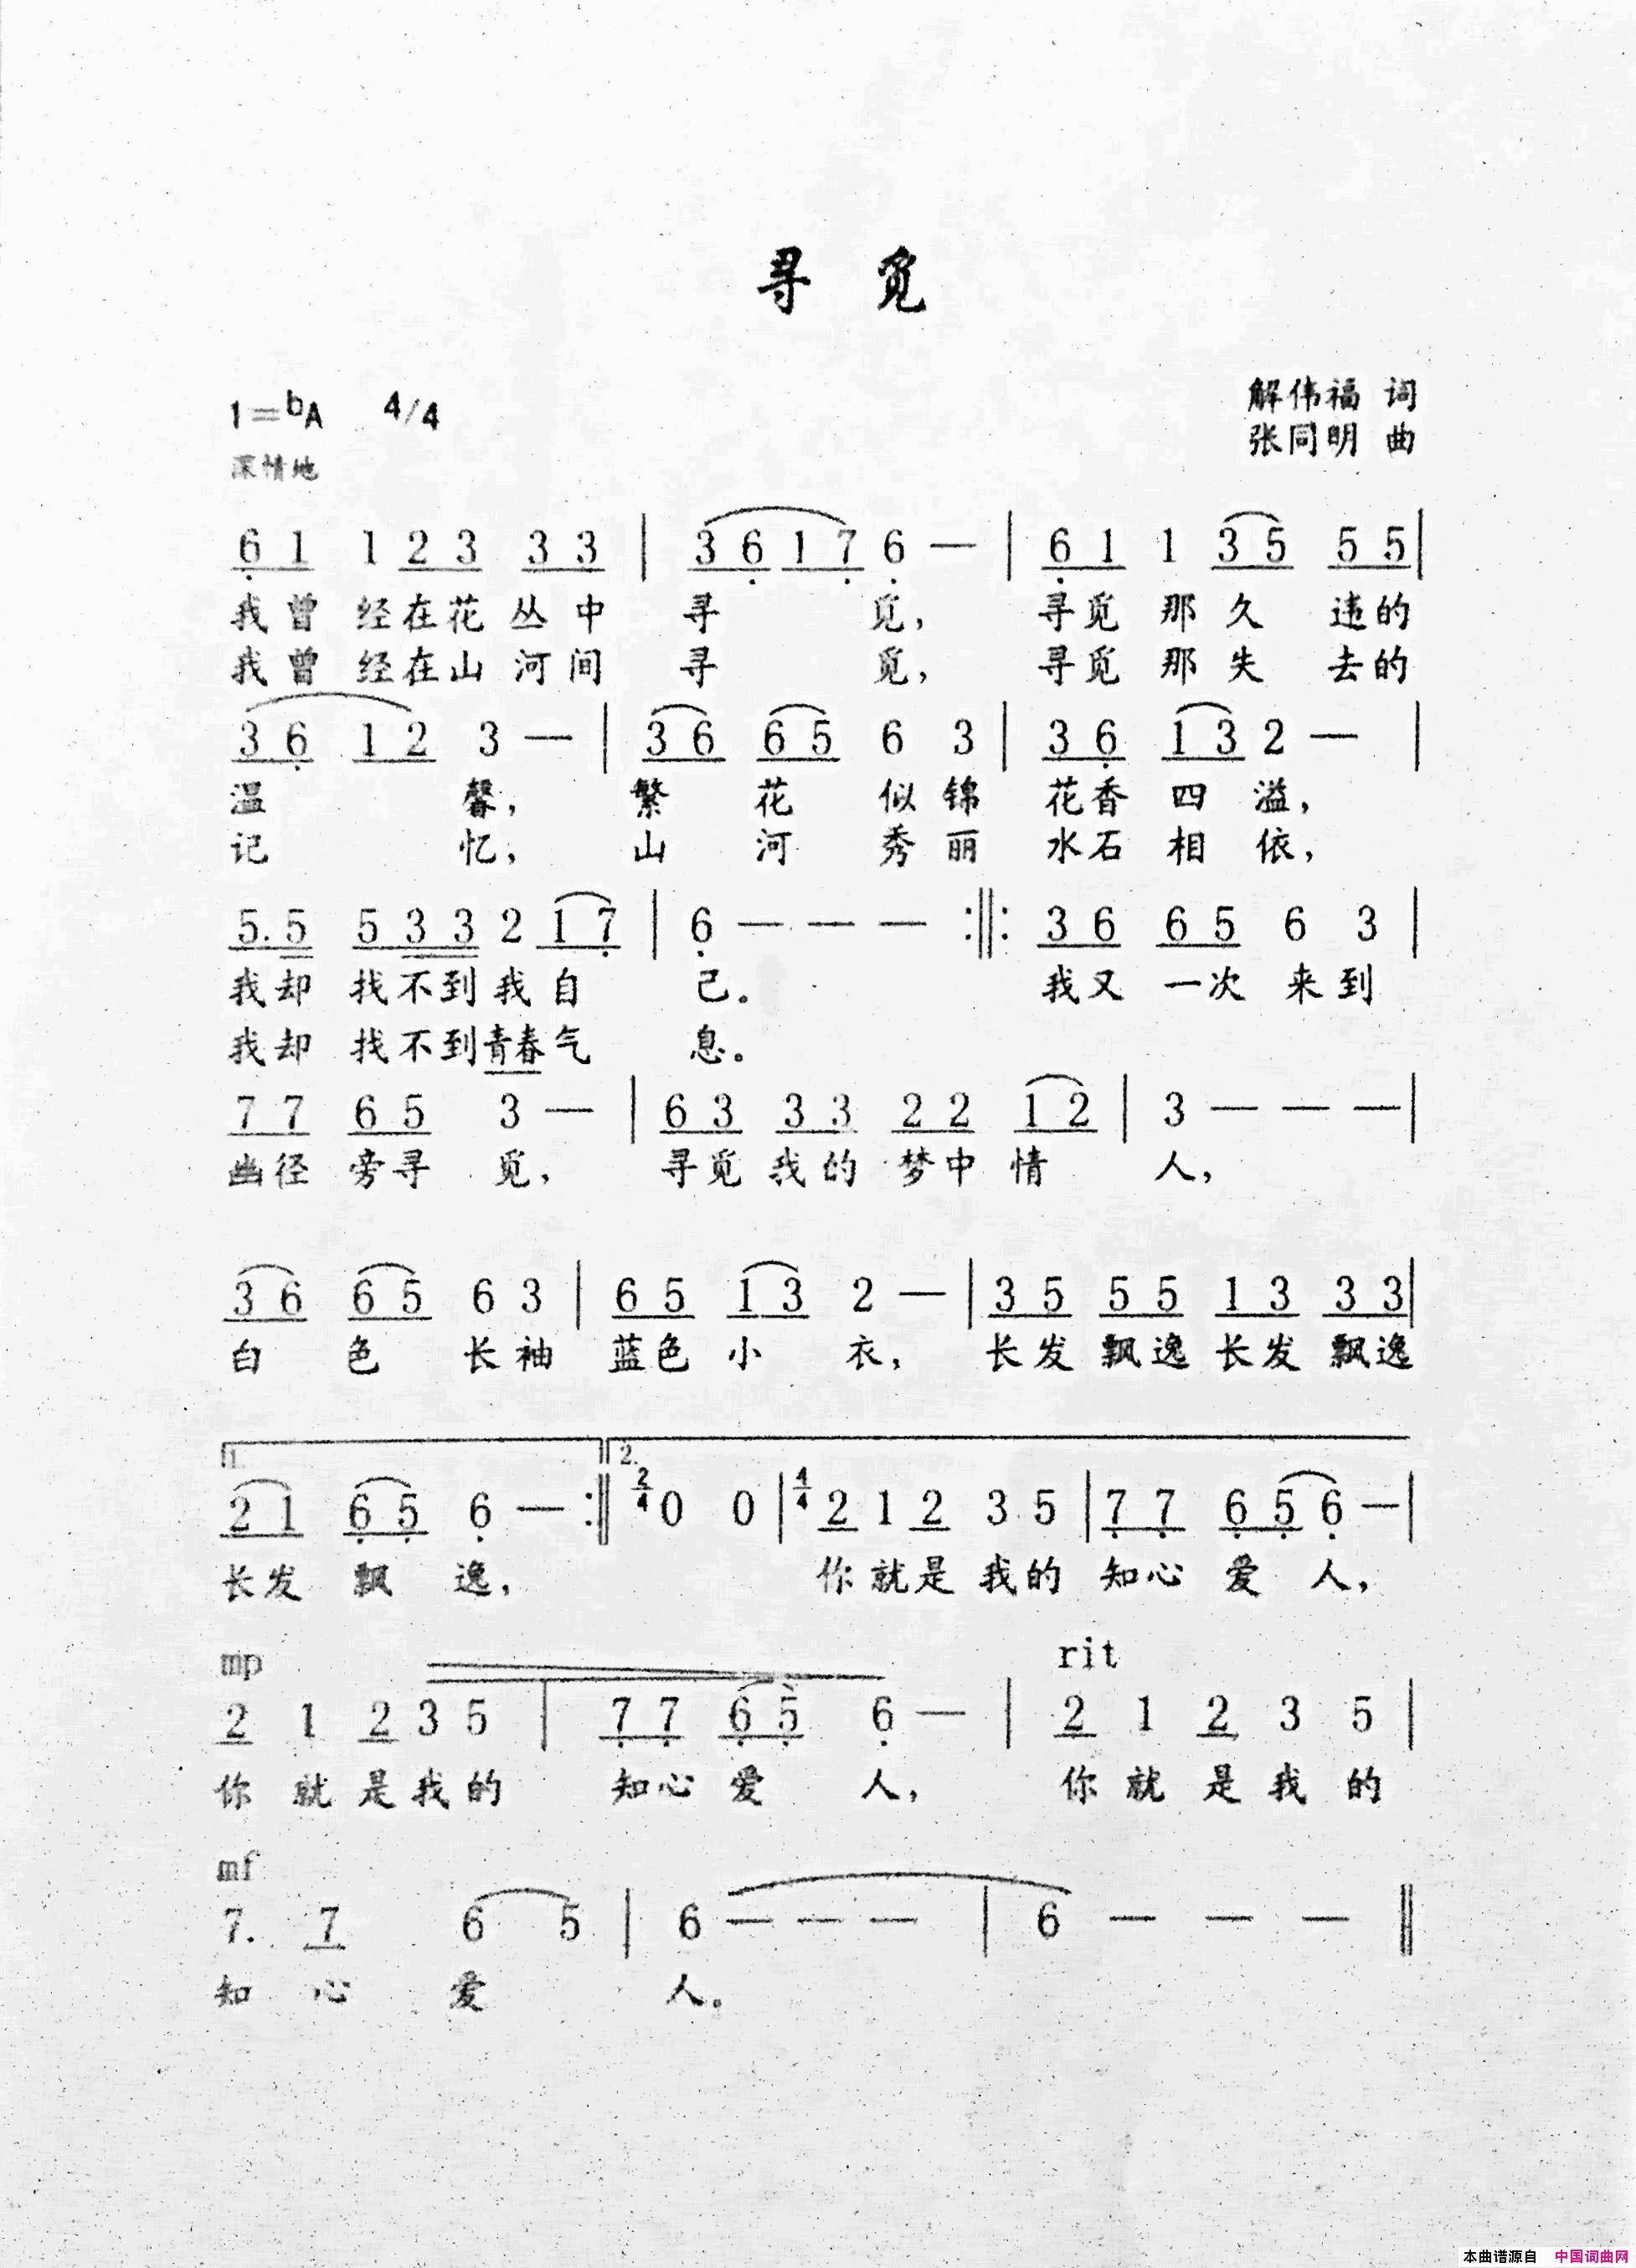 寻 觅
1=bA 4/4
解伟福 词
张同明 曲
深情地
6 1 1 2 3 3 3 | 3 6 1 7 6 — | 6 1 1 3 5 5 5 |
我曾 经在花 丛中 寻 觅， 寻觅 那 久 违的
我曾 经在山 河间 寻 觅， 寻觅 那 失 去的
3 6 1 2 3 — | 3 6 6 5 6 3 | 3 6 1 3 2 — |
温 馨， 繁 花 似锦 花香 四 溢，
记 忆， 山 河 秀丽 水石 相 依，
5. 5 5 3 3 2 1 7 | 6 — — — :||: 3 6 6 5 6 3 |
我却 找不到 我 自 己。 我又 一次 来到
我却 找不到 青春 气 息。
7 7 6 5 3 — | 6 3 3 3 2 2 1 2 | 3 — — — |
幽径 旁寻 觅， 寻觅 我的 梦中 情 人，
3 6 6 5 6 3 | 6 5 1 3 2 — | 3 5 5 5 1 3 3 3 |
白 色 长袖 蓝色 小 衣， 长发 飘逸 长发 飘逸
1. 2.
2 1 6 5 6 — :|| 2/4 0 0 | 4/4 2 1 2 3 5 | 7 7 6 5 6 — |
长发 飘 逸， 你就是 我的 知心 爱 人，
mp rit
2 1 2 3 5 | 7 7 6 5 6 — | 2 1 2 3 5 |
你 就 是我的 知心 爱 人， 你 就 是 我 的
mf
7. 7 6 5 | 6 — — — | 6 — — — ||
知 心 爱 人。
本曲谱源自 中国词曲网